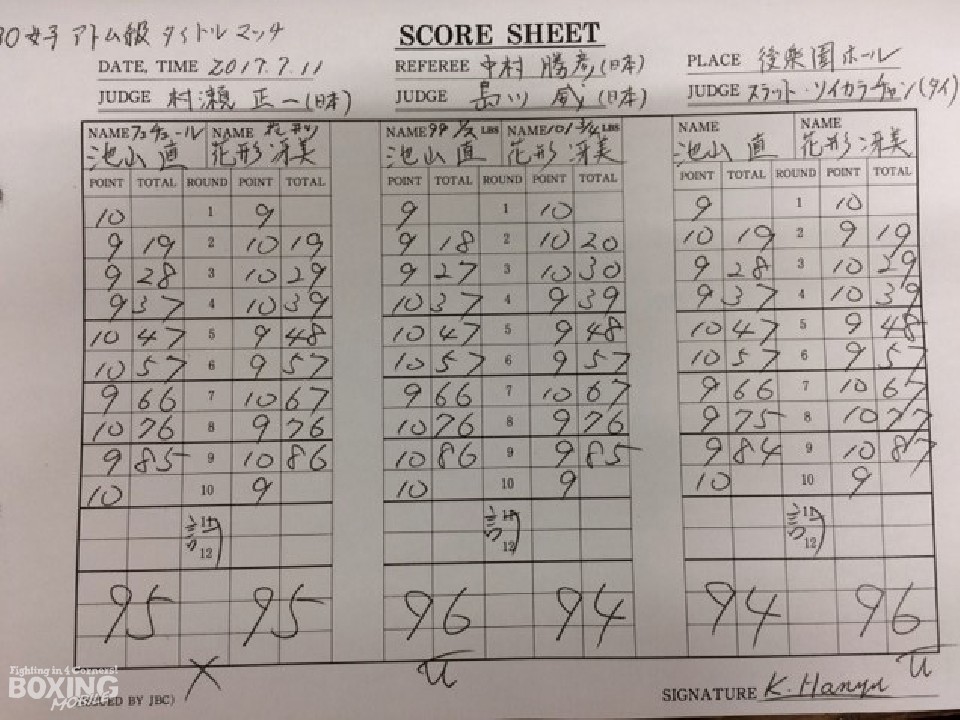 女子 アトム級 タイトルマッチ
SCORE SHEET
DATE, TIME 2017.7.11 REFEREE 中村 勝彦(日本) PLACE 後楽園ホール
JUDGE 村瀬 正一(日本) JUDGE 島川 威(日本) JUDGE スラット・ソイカラチャン(タイ)
NAME フュチュール NAME NAME 99 1/2 LBS NAME 101 3/4 LBS NAME NAME
池山 直 花形 冴美 池山 直 花形 冴美 池山 直 花形 冴美
POINT TOTAL ROUND POINT TOTAL POINT TOTAL ROUND POINT TOTAL POINT TOTAL ROUND POINT TOTAL
10 1 9 9 1 10 9 1 10
9 19 2 10 19 9 18 2 10 20 10 19 2 9 19
9 28 3 10 29 9 27 3 10 30 9 28 3 10 29
9 37 4 10 39 10 37 4 9 39 9 37 4 10 39
10 47 5 9 48 10 47 5 9 48 10 47 5 9 48
10 57 6 9 57 10 57 6 9 57 10 57 6 9 57
9 66 7 10 67 9 66 7 10 67 9 66 7 10 67
10 76 8 9 76 10 76 8 9 76 9 75 8 10 77
9 85 9 10 86 10 86 9 9 85 9 84 9 10 87
10 10 9 10 10 9 10 10 9
11 11 11
12 12 12
95 95 96 94 94 96
Fighting in 4 Corners!
BOXING
MOBILE
ISSUED BY JBC) SIGNATURE K. Hanyu